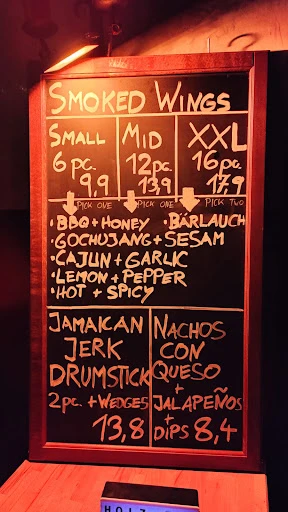 SMOKED WINGS
SMALL
6 pc.
9,9
MID
12pc.
13,9
XXL
16 pc.
17,9
PICK ONE
PICK ONE
PICK TWO
• BBQ + HONEY • BÄRLAUCH
• GOCHUJANG + SESAM
• CAJUN + GARLIC
• LEMON + PEPPER
• HOT + SPICY
JAMAICAN
JERK
DRUMSTICK
2 pc. + WEDGES
13,8
NACHOS
CON
QUESO
+
JALAPEÑOS
+
DIPS 8,4
HOLZ